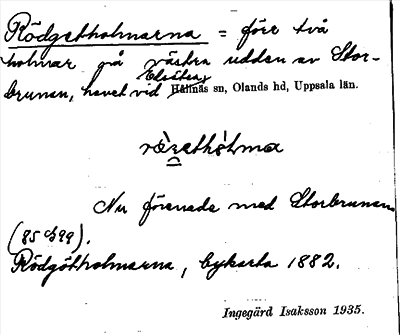 Rödgetholmarna = före två
holmar på västra udden av Stor-
brunen, havet vid Hållnäs sn, Olands hd, Uppsala län.
Nu förenade med Storbrunen
(85 S99).
Rödgötholmarna, bykarta 1882.
Ingegärd Isaksson 1935.